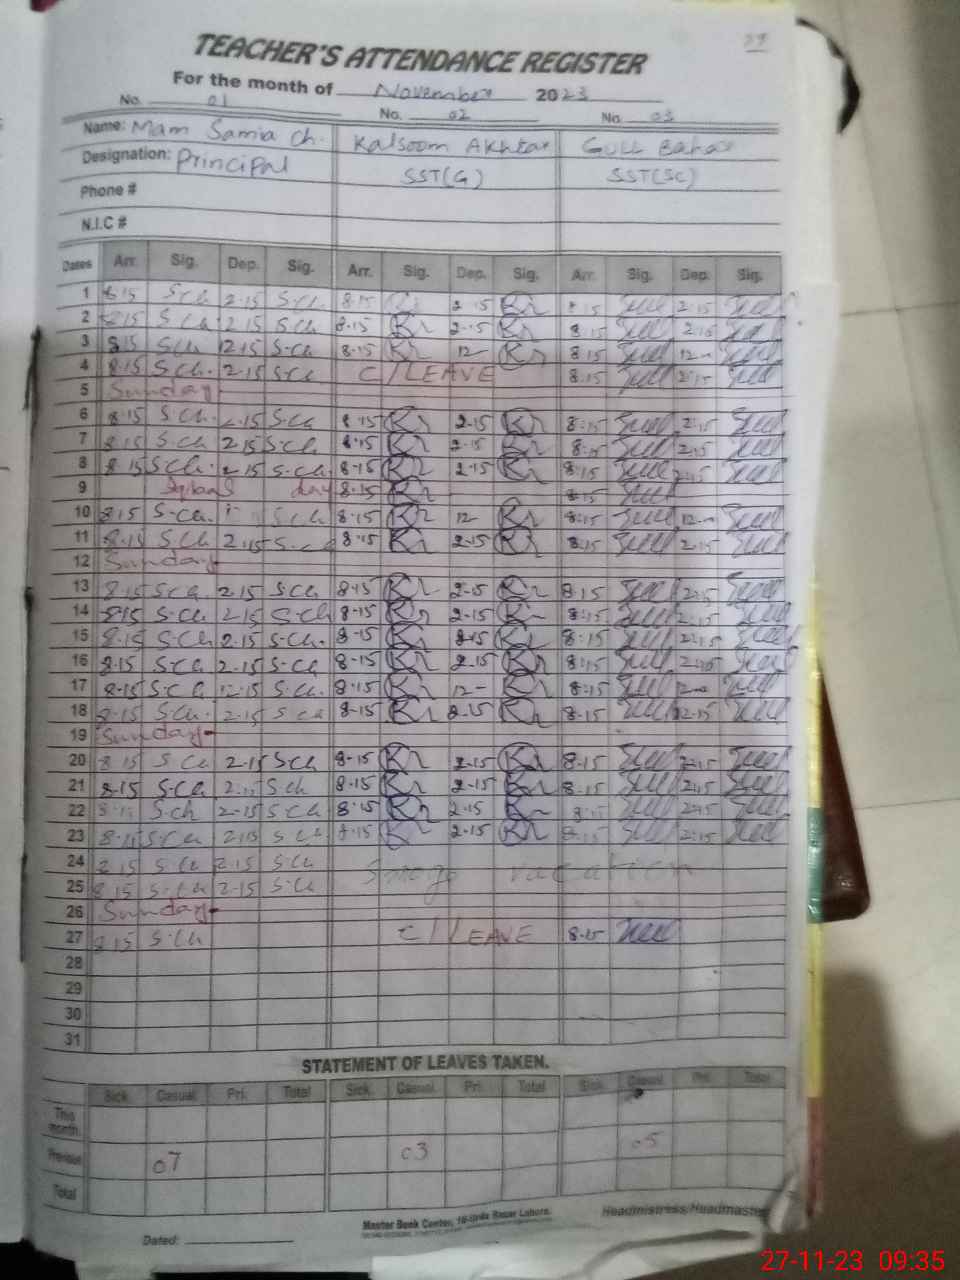 29
TEACHER'S ATTENDANCE REGISTER
For the month of November 2023
No. 01 No. 02 No. 03
Name: Mam Samia Ch. Kalsoom Akhtar Gull Bahar
Designation: Principal SST(G) SST(SC)
Phone #
N.I.C #
Dates Arr. Sig. Dep. Sig. Arr. Sig. Dep. Sig. Arr. Sig. Dep. Sig.
1 8.15 S.ch 2.15 S.ch 8.15 2.15 8.15 2.15
2 8.15 S.ch 2.15 S.ch 8.15 2.15 8.15 2.15
3 8.15 S.ch 12.15 S.ch 8.15 12 8.15 12
4 8.15 S.ch. 2.15 S.ch C/LEAVE 8.15 2.15
5 Sunday
6 8.15 S.ch. 2.15 S.ch 8.15 2.15 8:15 2:15
7 8.15 S.ch 2.15 S.ch 8.15 2.15 8:15 2:15
8 8.15 S.ch. 2.15 S.ch. 8.15 2.15 8:15 2:15
9 Iqbal day 8.15 8:15
10 8.15 S.ch. S.ch 8.15 12 8:15 12
11 8.15 S.ch 2.15 S.ch 8.15 2.15 8.15 2.15
12 Sunday
13 8.15 S.ch 2.15 S.ch 8.15 2.15 8.15 2:15
14 8.15 S.ch 2.15 S.ch 8.15 2.15 8:15 2:15
15 8.15 S.ch 2.15 S.ch. 8.15 2.15 8:15 2:15
16 8.15 S.ch 2.15 S.ch 8.15 2.15 8:15 2:15
17 8.15 S.ch 12.15 S.ch. 8.15 12 8.15 12
18 8.15 S.ch. 2.15 S.ch 8.15 2.15 8.15 2.15
19 Sunday
20 8.15 S.ch 2.15 S.ch 8.15 2.15 8.15 2:15
21 8.15 S.ch 2.15 S.ch 8.15 2.15 8.15 2:15
22 8.15 S.ch 2.15 S.ch 8.15 2.15 2:15
23 8.15 S.ch 2.15 S.ch 8.15 2.15 8.15 2:15
24 8.15 S.ch 2.15 S.ch Smog vacation
25 8.15 S.ch 2.15 S.ch
26 Sunday
27 8.15 S.ch C/LEAVE 8.15
28
29
30
31
STATEMENT OF LEAVES TAKEN.
Sick Casual Pri. Total Sick. Casual Pri. Total Sick. Casual Pri. Total
This month.
Previous 07 03 05
Total
Master Book Center, 16-Urdu Bazar Lahore.
Headmistress/Headmaster
Dated:
27-11-23 09:35